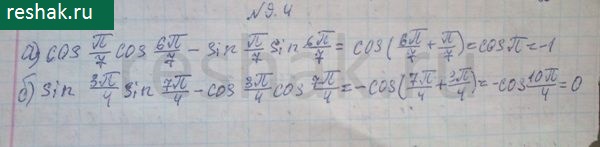 reshak.ru
№9.4
а) cos π/7 cos 6π/7 − sin π/7 sin 6π/7 = cos(6π/7 + π/7) = cosπ = −1
б) sin 3π/4 sin 7π/4 − cos 3π/4 cos 7π/4 = −cos(7π/4 + 3π/4) = −cos 10π/4 = 0